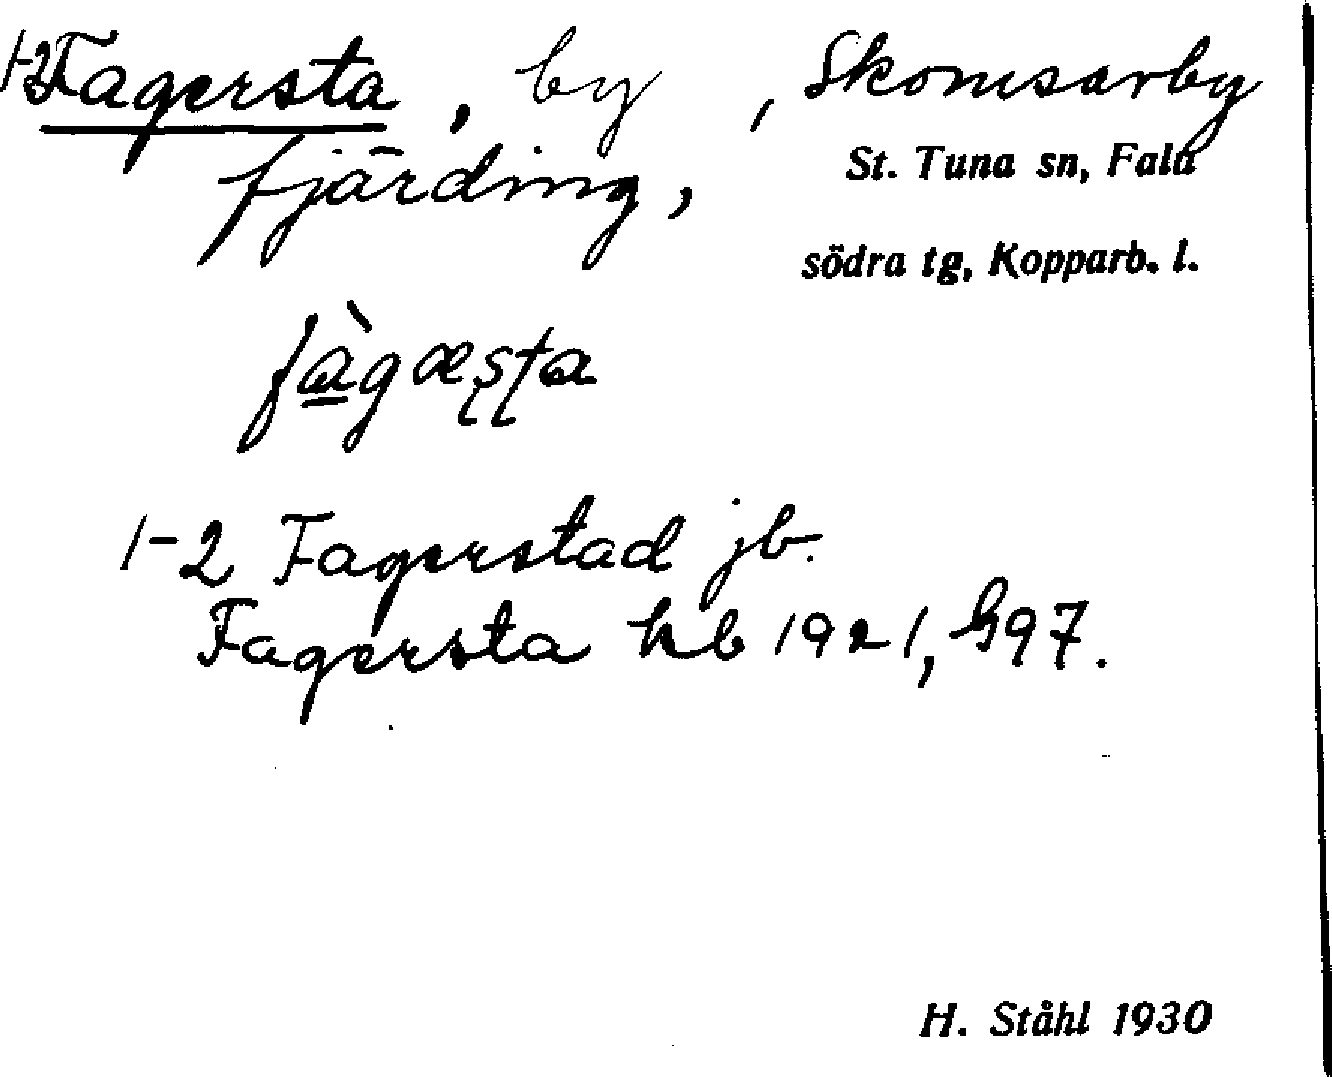 1-2 Fagersta, by, Skomsarby
fjärding,
St. Tuna sn, Falu
södra tg, Kopparb. l.
fàgæṣṭa
1-2 Fagerstad jb.
Fagersta hb 1921, S97.
H. Ståhl 1930